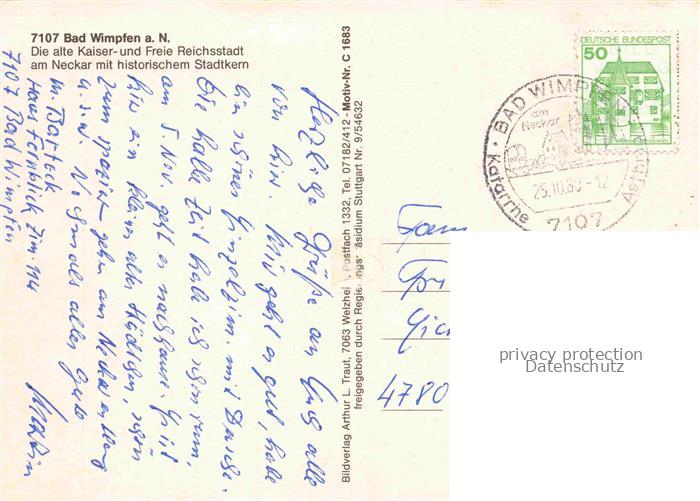 7107 Bad Wimpfen a. N.
Die alte Kaiser- und Freie Reichsstadt
am Neckar mit historischem Stadtkern
Herzliche Grüße an Euch alle
von hier. Mir geht es gut, habe
ein schönes Einzelzim. mit Dusche.
Die halbe Zeit habe ich schon rum,
am 5. Nov. geht es nachhause.
hier ein kleines altes Städtchen, schön
zum spazieren gehen am Neckar entlang
u.s.w. Nochmals alles Gute
M. Bartock
Haus Fernblick Zim. 114
7107 Bad Wimpfen
Bildverlag Arthur L. Traut, 7063 Welzheim Postfach 1332, Tel. 07182/412 - Motiv-Nr. C 1683
freigegeben durch Regierungspräsidium Stuttgart Nr. 9/54632
DEUTSCHE BUNDESPOST
50
BAD WIMPFEN
am
Neckar
25.10.80-12
7107
Katarrhe
Asthma
Fam
4780
privacy protection
Datenschutz